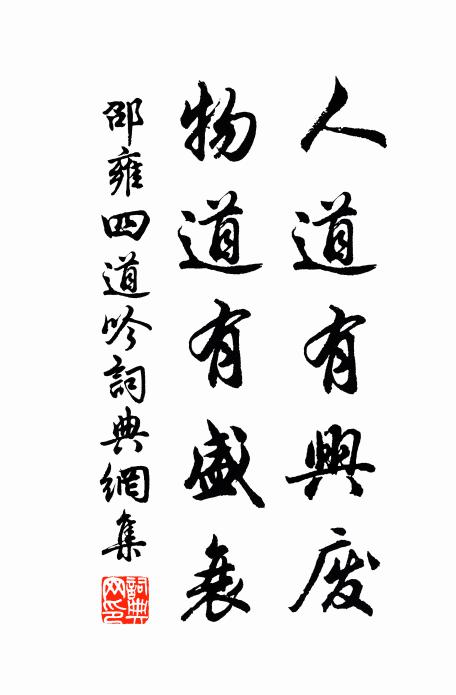 人道有興廢
物道有盛衰
邵雍四道吟詞典網集
詞典網印